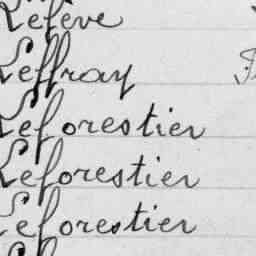 Lefeve
Leffray
Leforestier
Leforestier
Leforestier